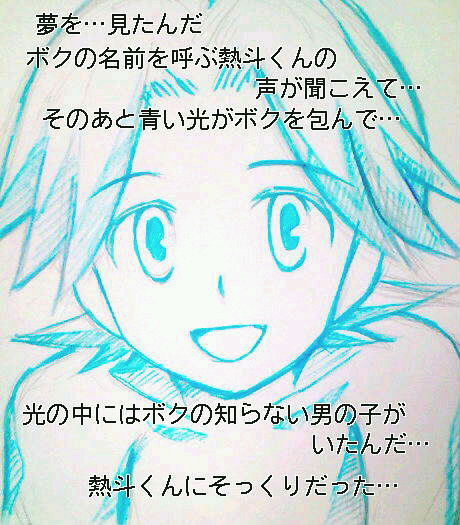 夢を…見たんだ
ボクの名前を呼ぶ熱斗くんの
声が聞こえて…
そのあと青い光がボクを包んで…
光の中にはボクの知らない男の子が
いたんだ…
熱斗くんにそっくりだった…